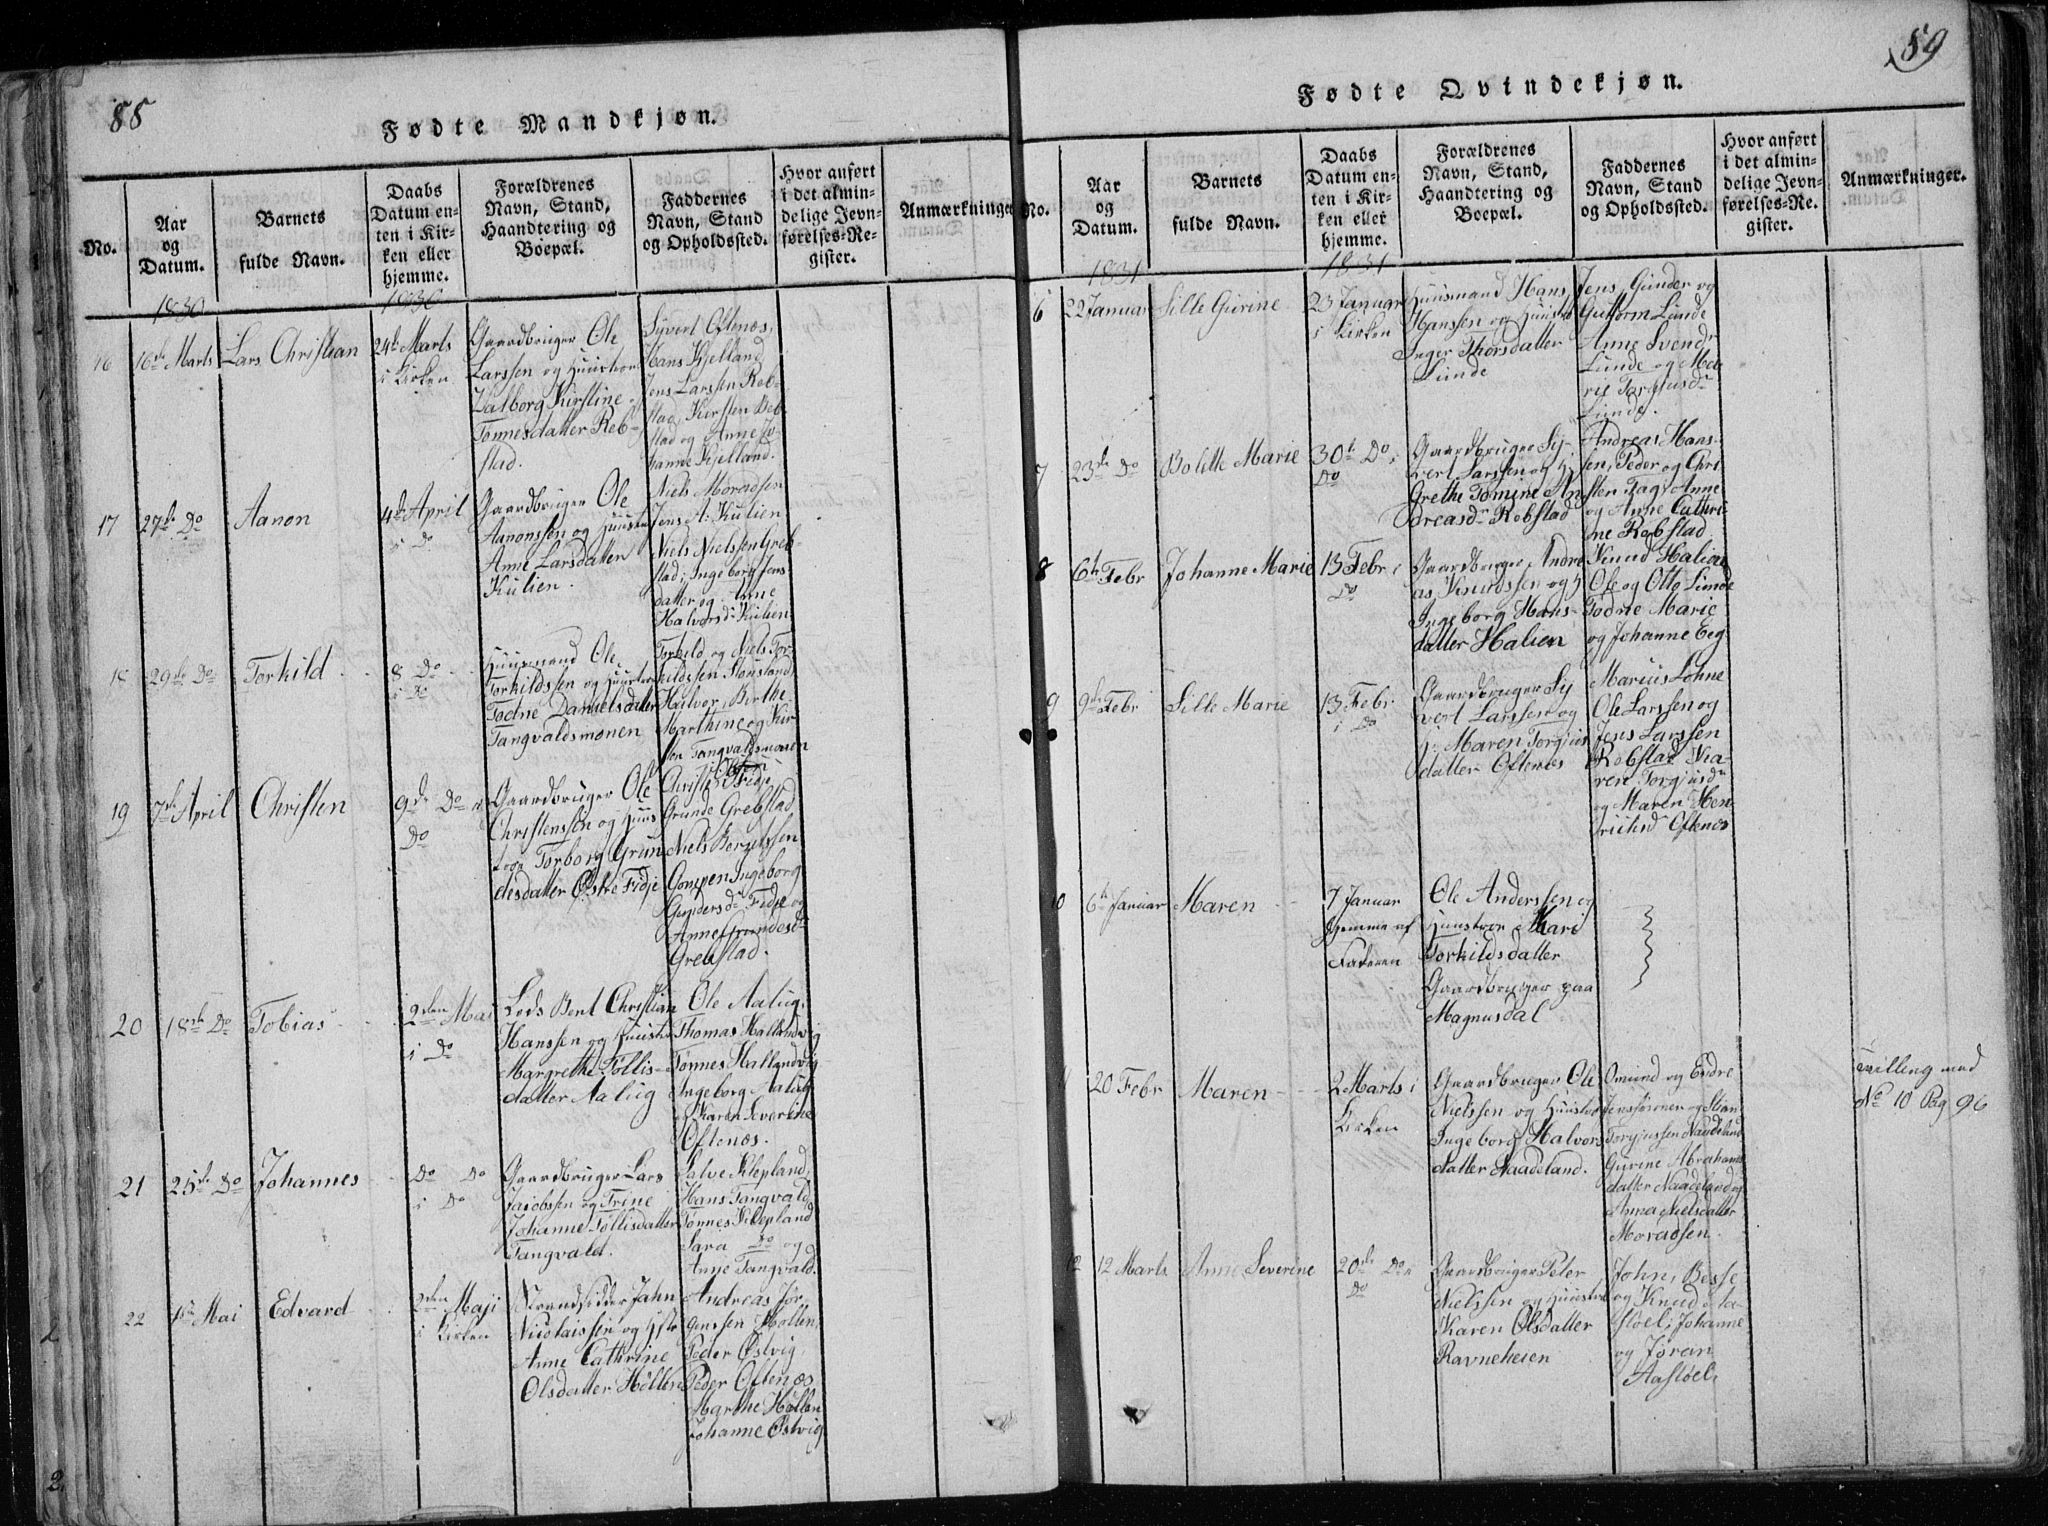 88
Fødte Mandkjøn.
No.
Aar
og
Datum.
Barnets
fulde Navn.
Daabs
Datum en-
ten i Kir-
ken eller
hjemme.
Forældrenes
Navn, Stand,
Haandtering og
Boepæl.
Faddernes
Navn, Stand
og Opholdssted.
Hvor anført
i det almin-
delige Jevn-
førelses-Re-
gister.
Anmærkninger
1830
1830
16
16de Marts
Lars Christian
24de Marts
i Kirken
Gaardbruger Ole
Larssen og Huustroe
Valborg Kirstine
Tønnesdatter Reb-
stad.
Syvert Oftenæs,
Hans Kjelland
Jens Larssen Reb-
stad, Kirsten Reb-
stad og Anne Jo-
hanne Kjelland.
17
27de Do
Aanon
4de April
i Do
Gaardbruger Ole
Aanonssen og Huustr
Anne Larsdatter
Kulien.
Niels Moradsen
Jens A. Kulien
Niels Nielssen Greb-
stad, Ingeborg Jens
datter og Anne
Halvorsdr Kulien
18
29de Do
Torkild
8 Do
i Do
Huusmand Ole
Torkildssen og Huustroe
Todne Danielsdatter
Tangvaldsmonen
Torkild og Niels Tor-
kildssen Stousland,
Halvor, Birthe
Marthine og Kir-
sten Tangvaldsmonen
19
7de April
Christen
9de Do i
Do
Gaardbruger Ole
Christenssen og Huus
troe Torborg Grun
desdatter Østre Fidje
Christen Fidje
Grunde Grebstad
Niels Bergelssen
Gompen Ingeborg
Gundersdr Fidje og
Anne Grundesdr
Grebstad.
20
18de Do
Tobias
2den Mai
i Do
Lods Bent Christian
Hanssen og Huustr
Margrethe Follis-
datter Aalug
Ole Aalug,
Thomas Hallandvig
Tønnes Hallandvig
Ingeborg Aalug
og Karen Severine
Oftenæs.
21
25de Do
Johannes
Do Do
i Do
Gaardbruger Lars
Jacobssen og Trine
Johanne Follisdatter
Tangvald.
Salve Klepland,
Hans Tangvald,
Tønnes Klepland
Sara Do og
Anne Tangvald.
22
Mai
Edvard
2den Maji
i Kirken
Strandsidder Jahn
Nicolaissen og Hstr
Anne Cathrine
Olsdatter Høllen
Andreas Jør-
genssen Høllen,
Peder Østvig,
Peder Oftenæs
Marthe Høllen
Johanne Østvig
2.
89
Fødte Qvindekjøn.
No.
Aar
og
Datum.
Barnets
fulde Navn.
Daabs
Datum en-
ten i Kir-
ken eller
hjemme.
Forældrenes
Navn, Stand,
Haandtering og
Boepæl.
Faddernes
Navn, Stand
og Opholdssted.
Hvor anført
i det almin-
delige Jevn-
førelses-Re-
gister.
Anmærkninger.
1831
1831
6
22 Januar
Sille Gurine
23 Januar
i Kirken
Huusmand Hans
Hanssen og Huustro
Inger Thorsdatter
Lunde
Jens, Gunder og
Guttorm Lunde
Anne Svendr
Lunde og Ma-
rie Torjusdr
Lunde.
7
23de Do
Bolette Marie
30te Do i
Do
Gaardbruger Sy-
vert Larssen og H
Grethe Tomine An
dreasdr Rebstad
Andreas Hans-
sen, Peder og Chri
sten Tag, Anne
og Anne Cathri-
ne Rebstad
8
6te Febr
Johanne Marie
13 Febr i
Do
Gaardbruger Andre
as Knudssen og H
Ingeborg Hans-
datter Halien
Knud Halien
Ole og Otto Lunde
Todne Marie
og Johanne Eeg
9
9de Febr
Sille Marie
13 Febr
i Do
Gaardbruger Sy
vert Larssen og
H. Maren Torgjus
datter Oftenæs
Marius Lohne
Ole Larssen og
Jens Larssen
Rebstad, Ka-
ren Torgjusdr
og Maren Hen-
richsdr Oftenæs
10
6te Januar
Maren
7 Januar
hjemme af
Faderen
Ole Anderssen og
Huustroe Mari
Torkildsdatter
Gaardbruger paa
Magnusdal
20 Febr
Maren
2 Marts i
Kirken
Gaardbruger Ole
Nielssen og Huustroe
Ingeborg Halvors
datter Naadeland.
Omund og Endre
Torgjussen Naadeland
Gurine Abrahams
datter Naadeland og
Anna Nielsdatter
Moradsen.
Tvilling med
No 10 Pag 96
12
12 Marts
Anne Severine
20de Do i
Do
Gaardbruger Peter
Nielssen og Huustroe
Karen Olsdatter
Ravneheien
John, Besse
og Knud Aa-
støel, Johanne
og Jøran
Aastøel.